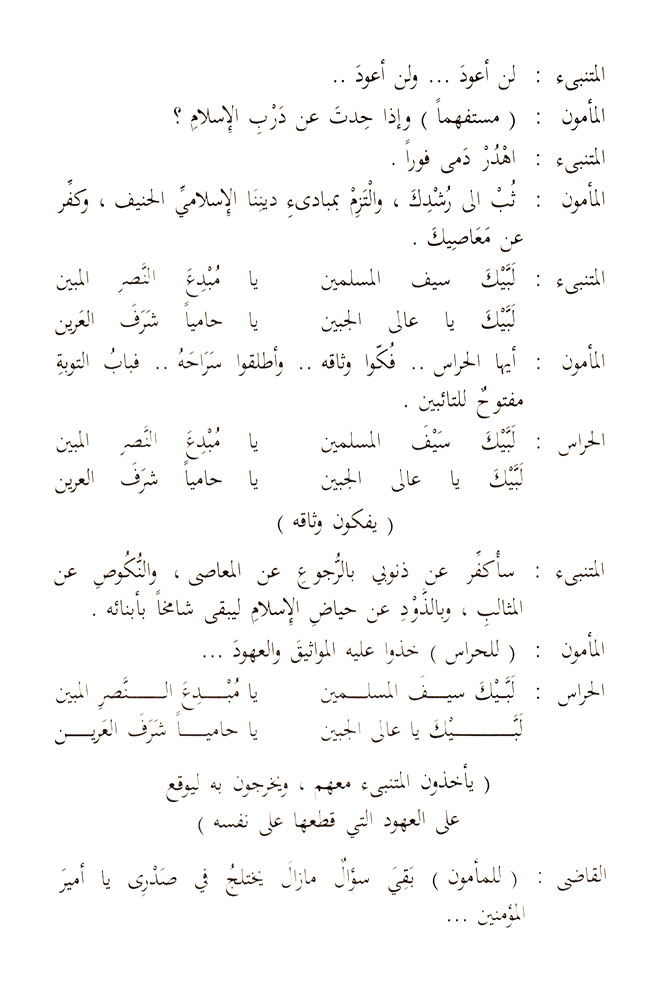 المتنبىء : لن أعودَ ... ولن أعودَ ..
المأمون : ( مستفهماً ) وإذا حِدتَ عن دَرْبِ الإِسلامِ ؟
المتنبىء : اهْدُرْ دَمى فوراً .
المأمون : ثُبْ الى رُشْدِكَ ، والْتَزِمْ بمبادىءِ ديننَا الإِسلاميِّ الحنيف ، وكفِّر
عن مَعَاصِيكَ .
المتنبىء : لَبَّيْكَ سيف المسلمين يا مُبْدِعَ النَّصرِ المبين
لَبَّيْكَ يا عالى الجبين يا حامياً شَرَفَ العَرين
المأمون : أيها الحراس .. فُكّوا وثاقه .. وأطلقوا سَرَاحَهُ .. فبابُ التوبةِ
مفتوحٌ للتائبين .
الحراس : لَبَّيْكَ سَيْفَ المسلمين يا مُبْدِعَ النَّصرِ المبين
لَبَّيْكَ يا عالى الجبين يا حامياً شرَفَ العرين
( يفكون وثاقه )
المتنبىء : سأُكفِّر عن ذنوبي بالرُّجوعِ عن المعاصى ، والنُّكُوصِ عن
المثالبِ ، وبالذَّوْدِ عن حياضِ الإِسلامِ ليبقى شامخاً بأبنائه .
المأمون : ( للحراس ) خذوا عليه المواثيقَ والعهودَ ...
الحراس : لَبَّيْكَ سيفَ المسلمين يا مُبْدِعَ النَّصرِ المبين
لَبَّيْكَ يا عالى الجبين يا حامياً شَرَفَ العَرين
( يأخذون المتنبىء معهم ، ويخرجون به ليوقع
على العهود التي قطعها على نفسه )
القاضى : ( للمأمون ) بَقِيَ سؤالٌ مازالَ يختلجُ في صَدْرِى يا أميرَ
المؤمنين ...